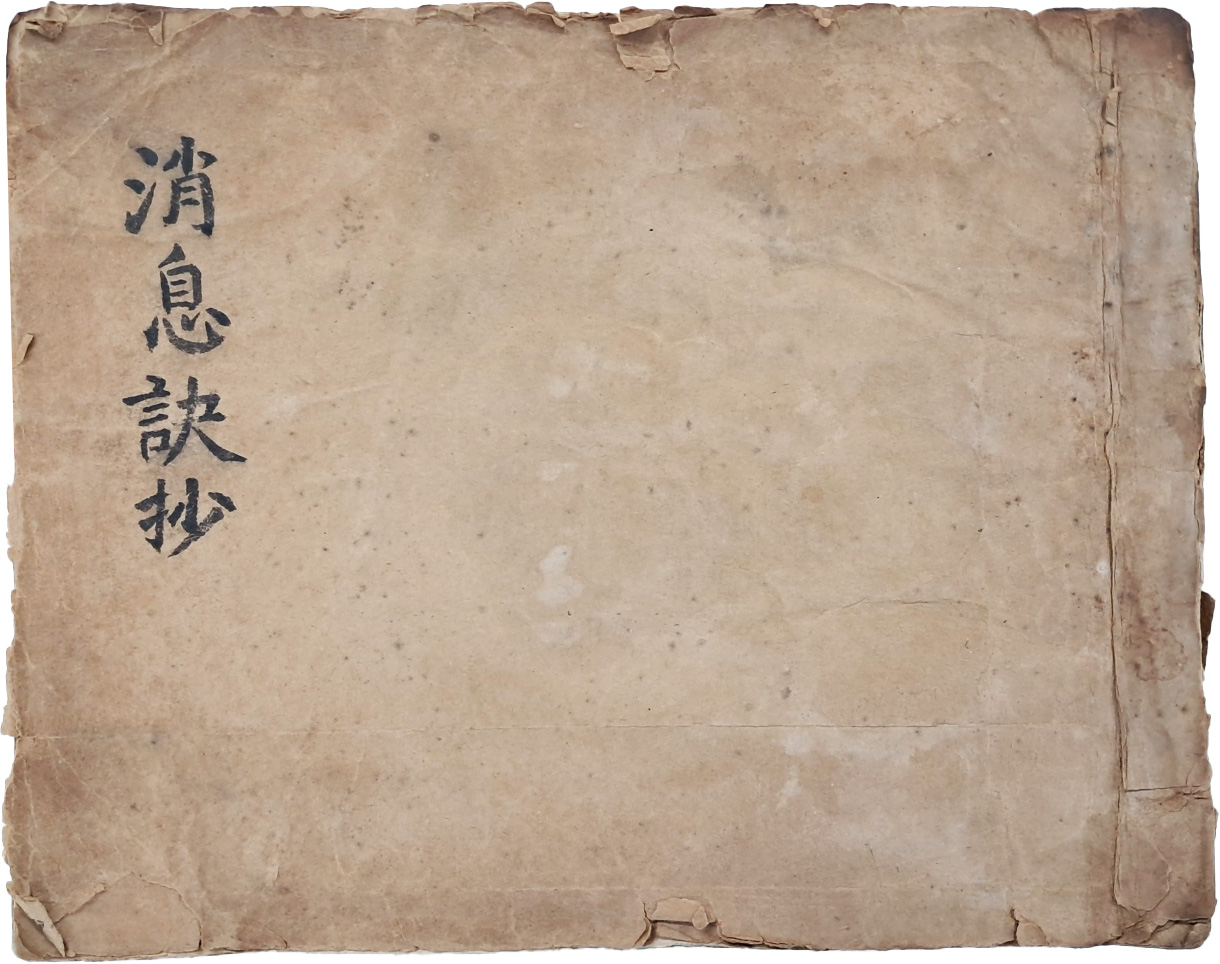 消息訣抄